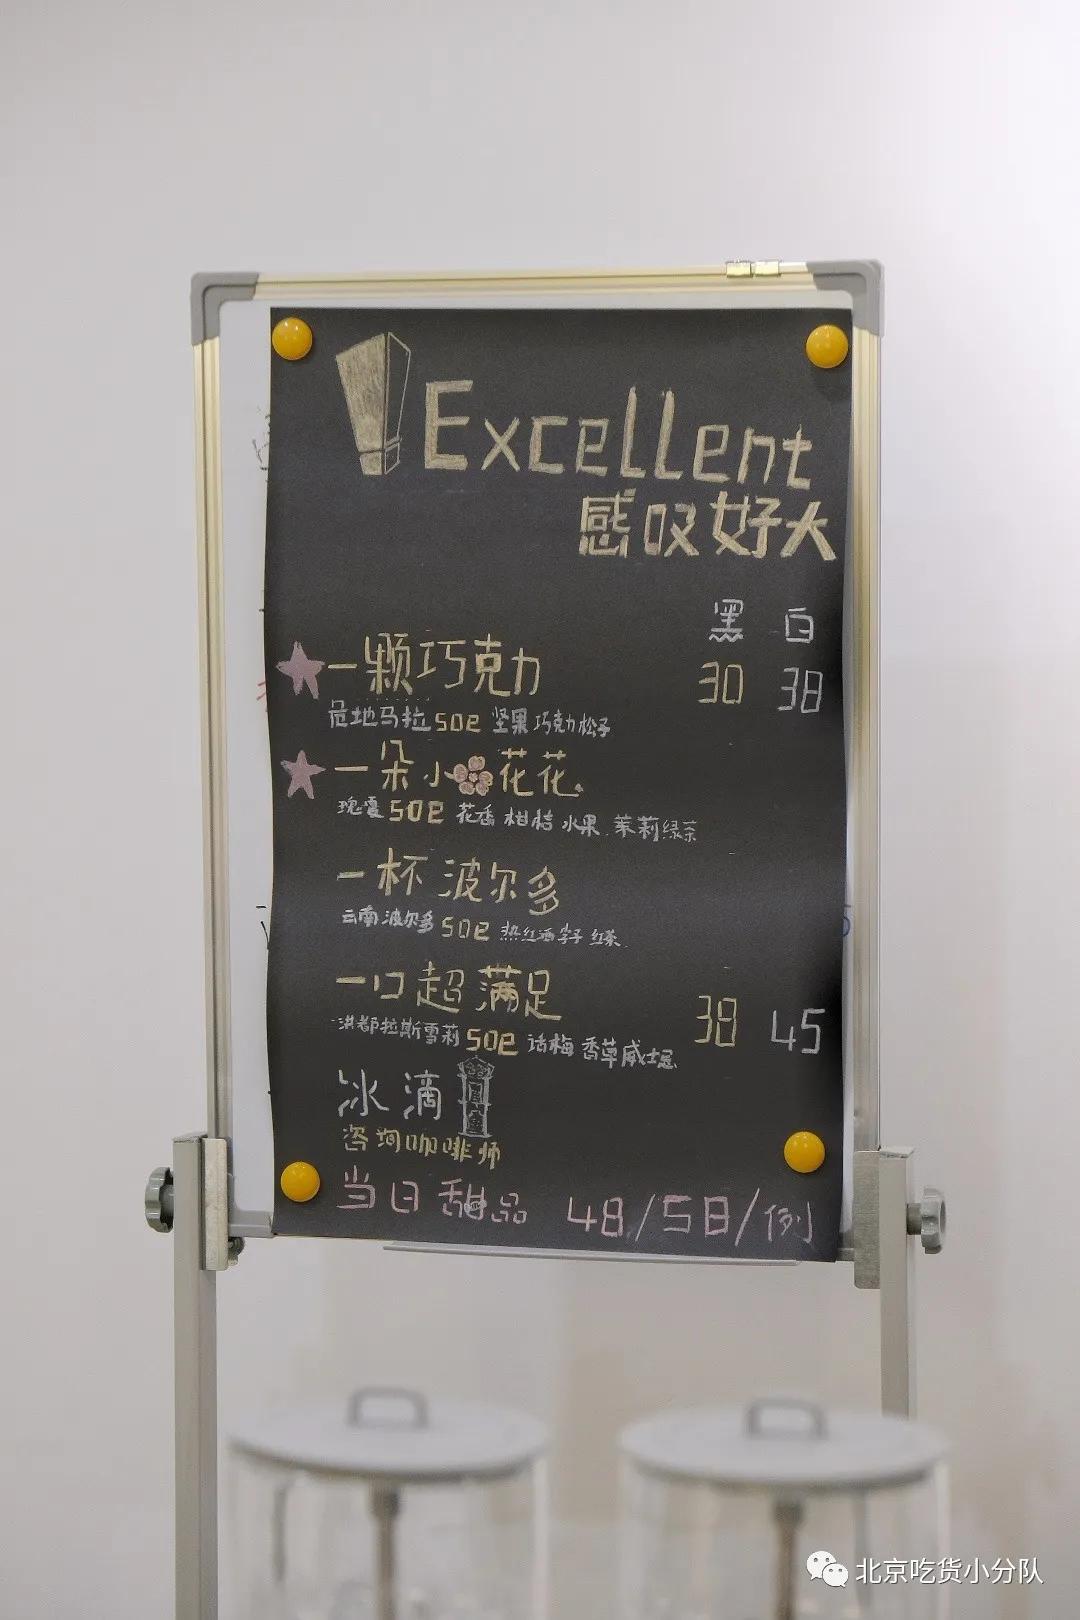 Excellent
感叹好大
黑 白
一颗巧克力 30 38
危地马拉 SOE 坚果 巧克力 松子
一朵小花花
瑰夏 SOE 花香 柑桔 水果 茉莉绿茶
一杯波尔多
云南波尔多 SOE 热红酒 李子 红茶
一口超满足 38 45
洪都拉斯雪莉 SOE 话梅 香草威士忌
冰滴
咨询咖啡师
当日甜品 48/58/例
北京吃货小分队